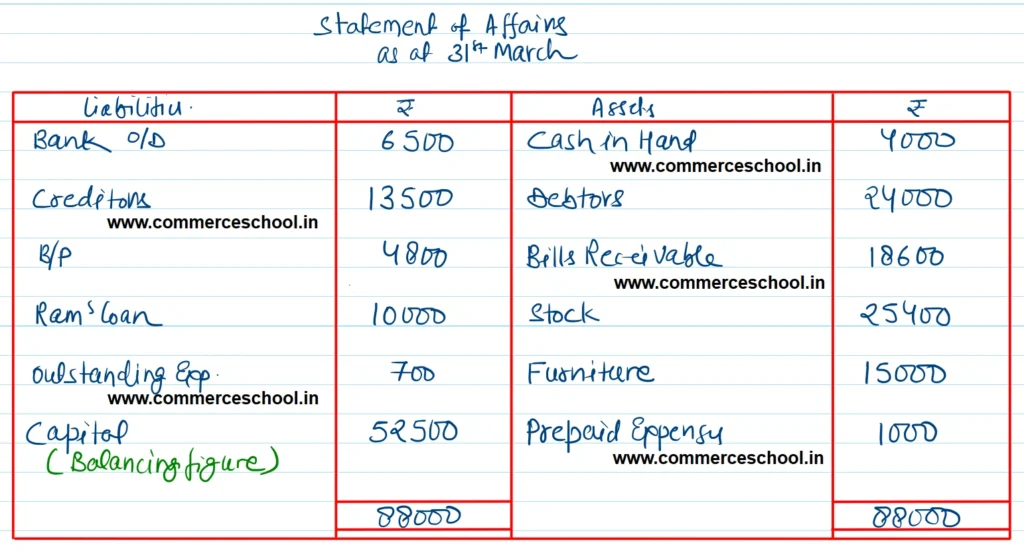 Statement of Affairs
as at 31st March
Liabilities. ₹ Assets ₹
Bank O/D 6500 Cash in Hand 4000
www.commerceschool.in
Creditors 13500 Debtors 24000
www.commerceschool.in
B/P 4800 Bills Receivable 18600
www.commerceschool.in
Ram's Loan 10000 Stock 25400
Outstanding Exp. 700 Furniture 15000
www.commerceschool.in
Capital 52500 Prepaid Expenses 1000
(Balancing figure)
www.commerceschool.in
88000 88000